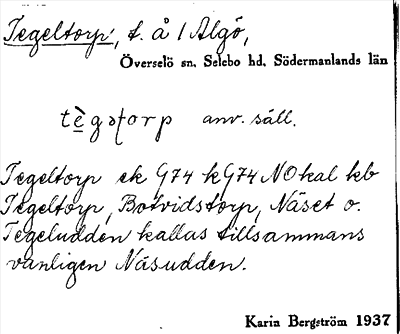 Tegeltorp, t. å / Algö,
Överselö sn, Selebo hd, Södermanlands län
anv. säll.
Tegeltorp ek G74 kG74 NO kal kb
Tegeltorp, Botvidstorp, Näset o.
Tegeludden kallas tillsammans
vanligen Näsudden.
Karin Bergström 1937